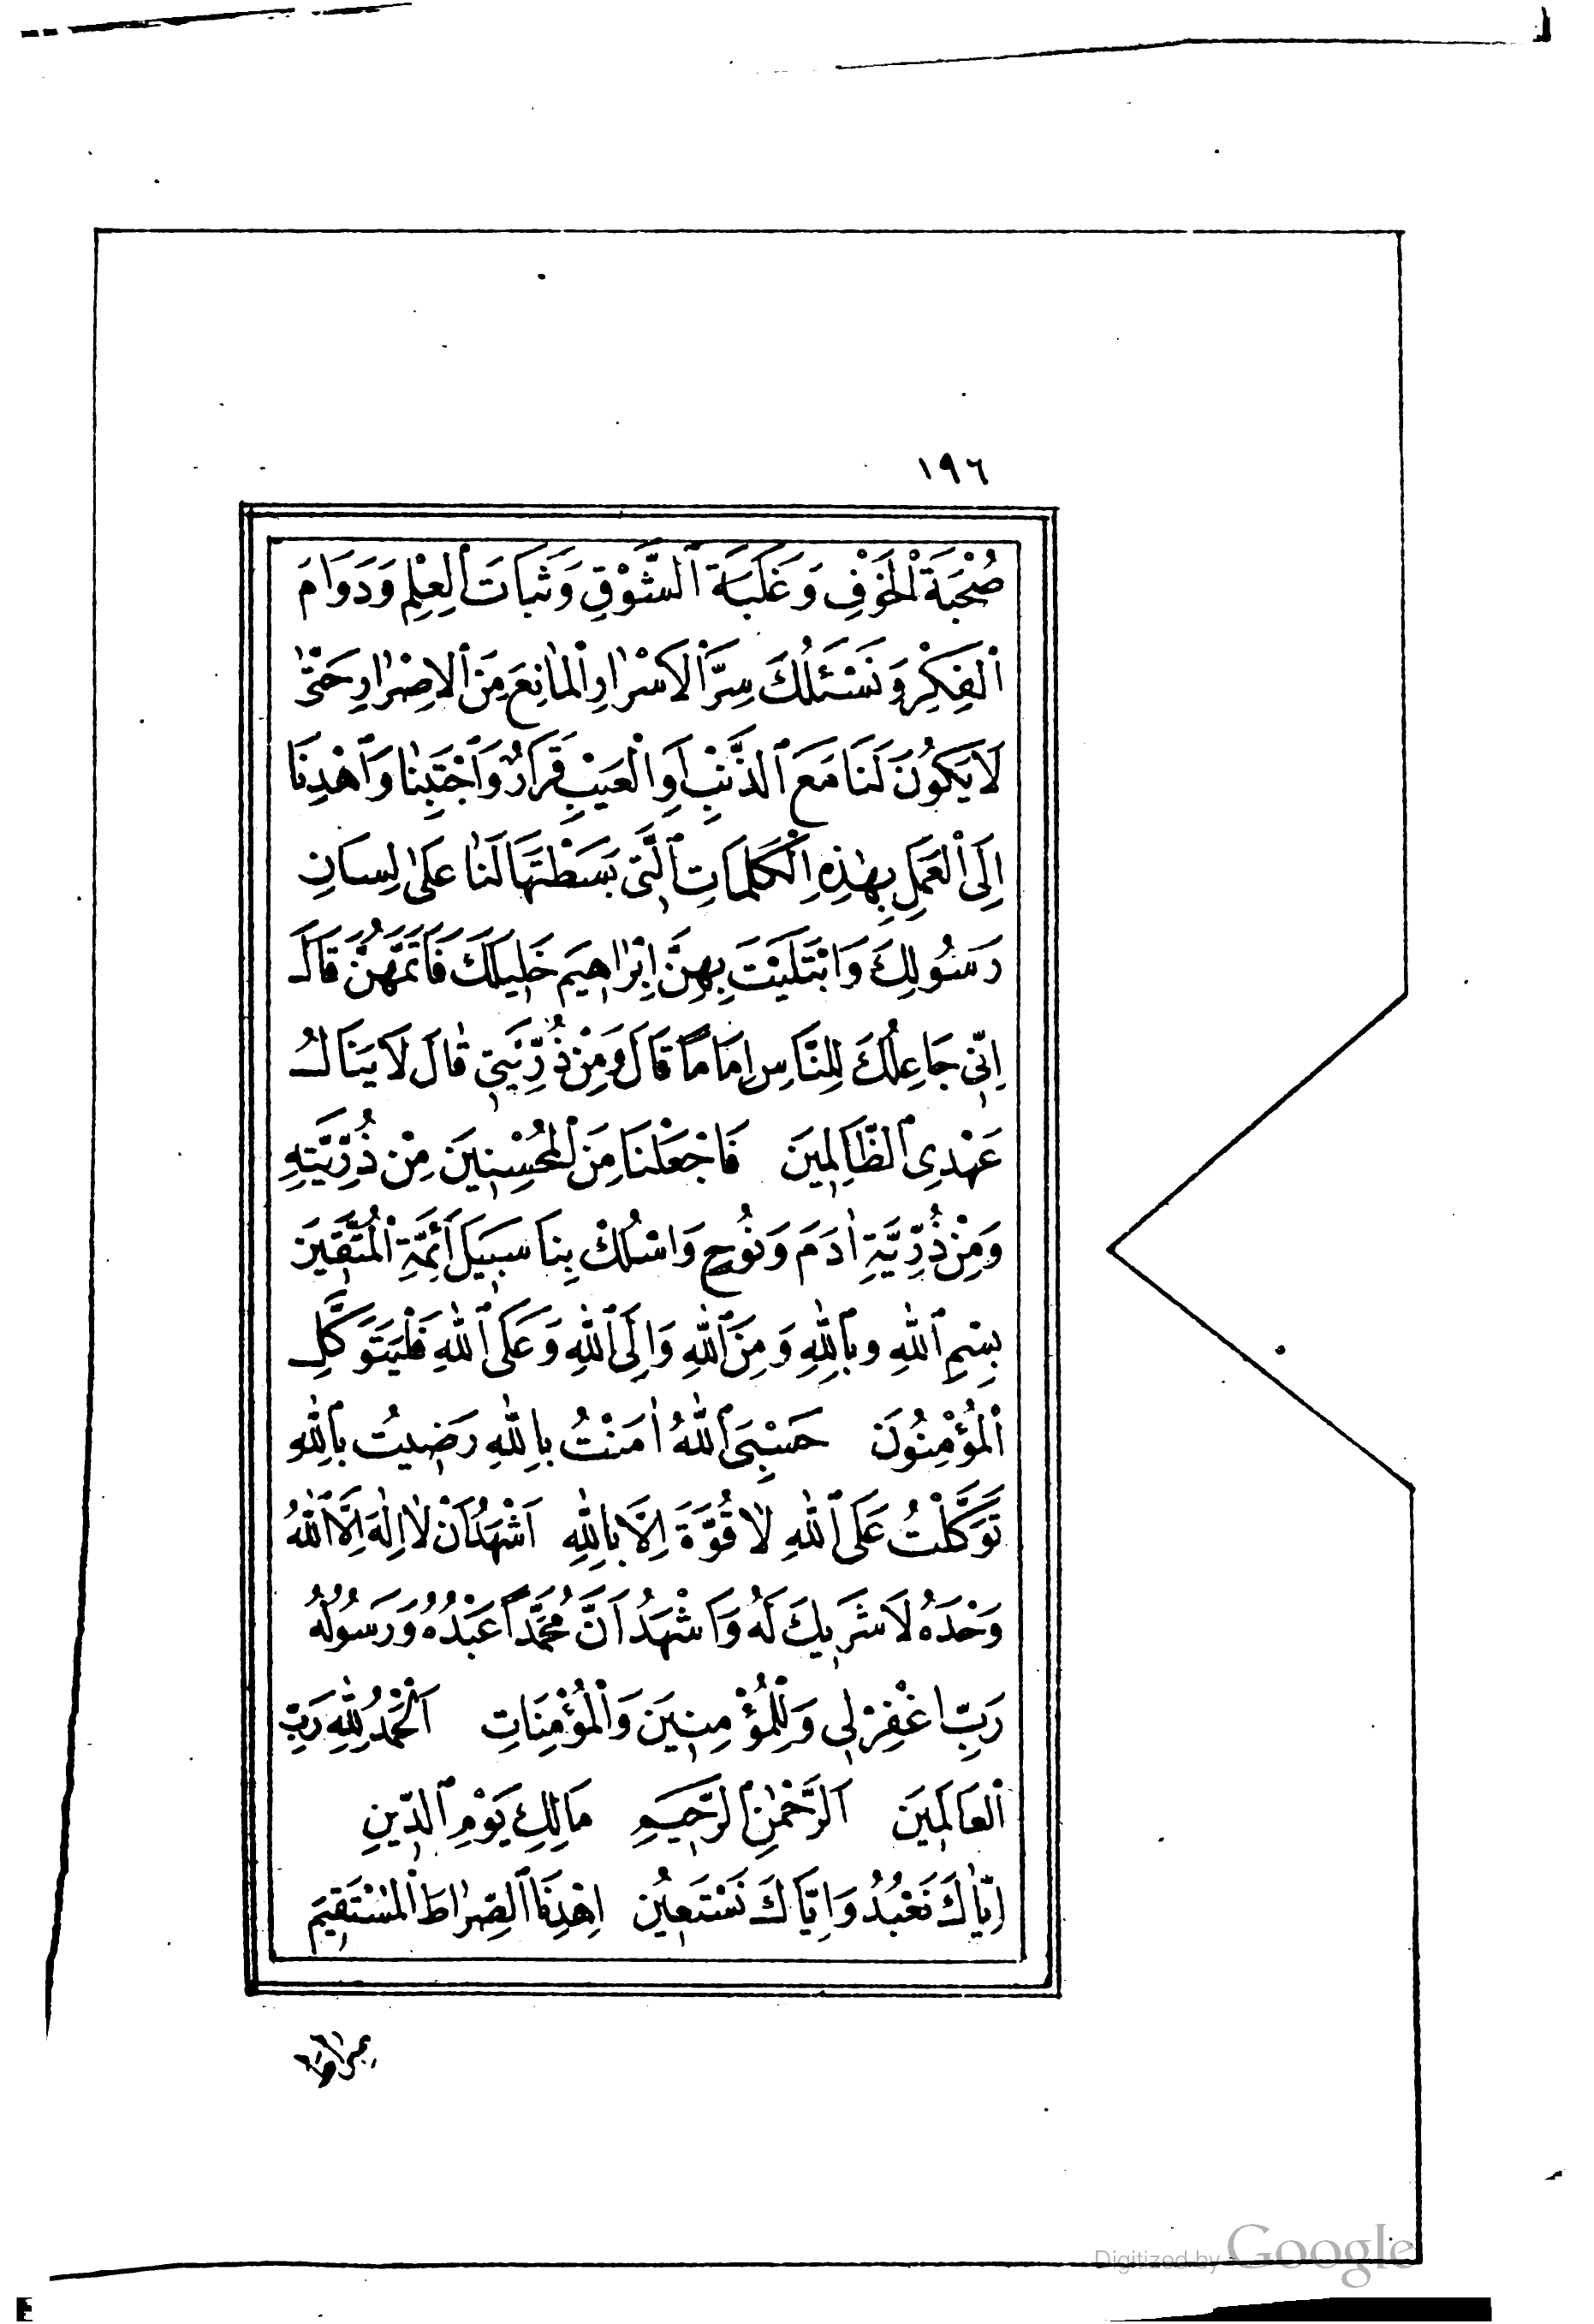 ١٩٦
صُحْبَةَ الْخَوْفِ وَغَلَبَةَ الشَّوْقِ وَثَبَاتَ الْعِلْمِ وَدَوَامَ
الْفِكْرِ وَنَسْئَلُكَ سِرَّ الْاَسْرَارِ الْمَانِعَ مِنَ الْاِصْرَارِ حَتّٰى
لَا يَكُونَ لَنَا مَعَ الذَّنْبِ اَوِ الْعَيْبِ قَرَارٌ وَاجْتَبِنَا وَاهْدِنَا
اِلَى الْعَمَلِ بِهٰذِهِ الْكَلِمَاتِ الَّتِى بَسَطْتَهَا لَنَا عَلٰى لِسَانِ
رَسُولِكَ وَابْتَلَيْتَ بِهِنَّ اِبْرَاهِيمَ خَلِيلَكَ فَاَتَمَّهُنَّ قَالَ
اِنِّى جَاعِلُكَ لِلنَّاسِ اِمَامًا قَالَ وَمِنْ ذُرِّيَّتِى قَالَ لَا يَنَالُ
عَهْدِى الظَّالِمِينَ فَاجْعَلْنَا مِنَ الْمُحْسِنِينَ مِنْ ذُرِّيَّتِهِ
وَمِنْ ذُرِّيَّةِ اٰدَمَ وَنُوحٍ وَاسْلُكْ بِنَا سَبِيلَ اَئِمَّةِ الْمُتَّقِينَ
بِسْمِ اللّٰهِ وبِاللّٰهِ وَمِنَ اللّٰهِ وَاِلَى اللّٰهِ وَعَلَى اللّٰهِ فَلْيَتَوَكَّلِ
الْمُؤْمِنُونَ حَسْبِىَ اللّٰهُ اٰمَنْتُ بِاللّٰهِ رَضِيتُ بِاللّٰهِ
تَوَكَّلْتُ عَلَى اللّٰهِ لَا قُوَّةَ اِلَّا بِاللّٰهِ اَشْهَدُ اَنْ لَا اِلٰهَ اِلَّا اللّٰهُ
وَحْدَهُ لَا شَرِيكَ لَهُ وَاَشْهَدُ اَنَّ مُحَمَّدًا عَبْدُهُ وَرَسُولُهُ
رَبِّ اغْفِرْ لِى وَلِلْمُؤْمِنِينَ وَالْمُؤْمِنَاتِ اَلْحَمْدُ لِلّٰهِ رَبِّ
الْعَالَمِينَ اَلرَّحْمٰنِ الرَّحِيمِ مَالِكِ يَوْمِ الدِّينِ
اِيَّاكَ نَعْبُدُ وَاِيَّاكَ نَسْتَعِينُ اِهْدِنَا الصِّرَاطَ الْمُسْتَقِيمَ
Digitized by Google